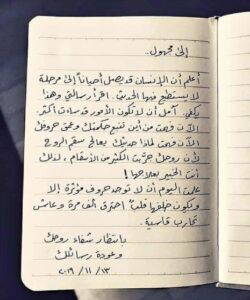 إلى مجهول..
أعلم أن الإنسان قد يصل أحياناً إلى مرحلة
لا يستطيع فيها الحديث. اقرأ رسالتي وهذا
يكفي. آمل أن لا تكون الأمور قد ساءت أكثر.
الآن فهمت من أين تنبع حكمتك وعمق حروفك
الآن فهمت لماذا حديثك يعالج سقم الروح
لأن روحك جرّبت الكثير من الأسقام، لذلك
أنت الخبير بعلاجها!
علمت اليوم أن لا توجد حروف مؤثرة إلا
ويكون خلفها قلبٌ احترق ألف مرة وعاش
تجارب قاسية.
بانتظار شفاء روحك
وعودة رسائلك
٢٠١٩/١١/١٣